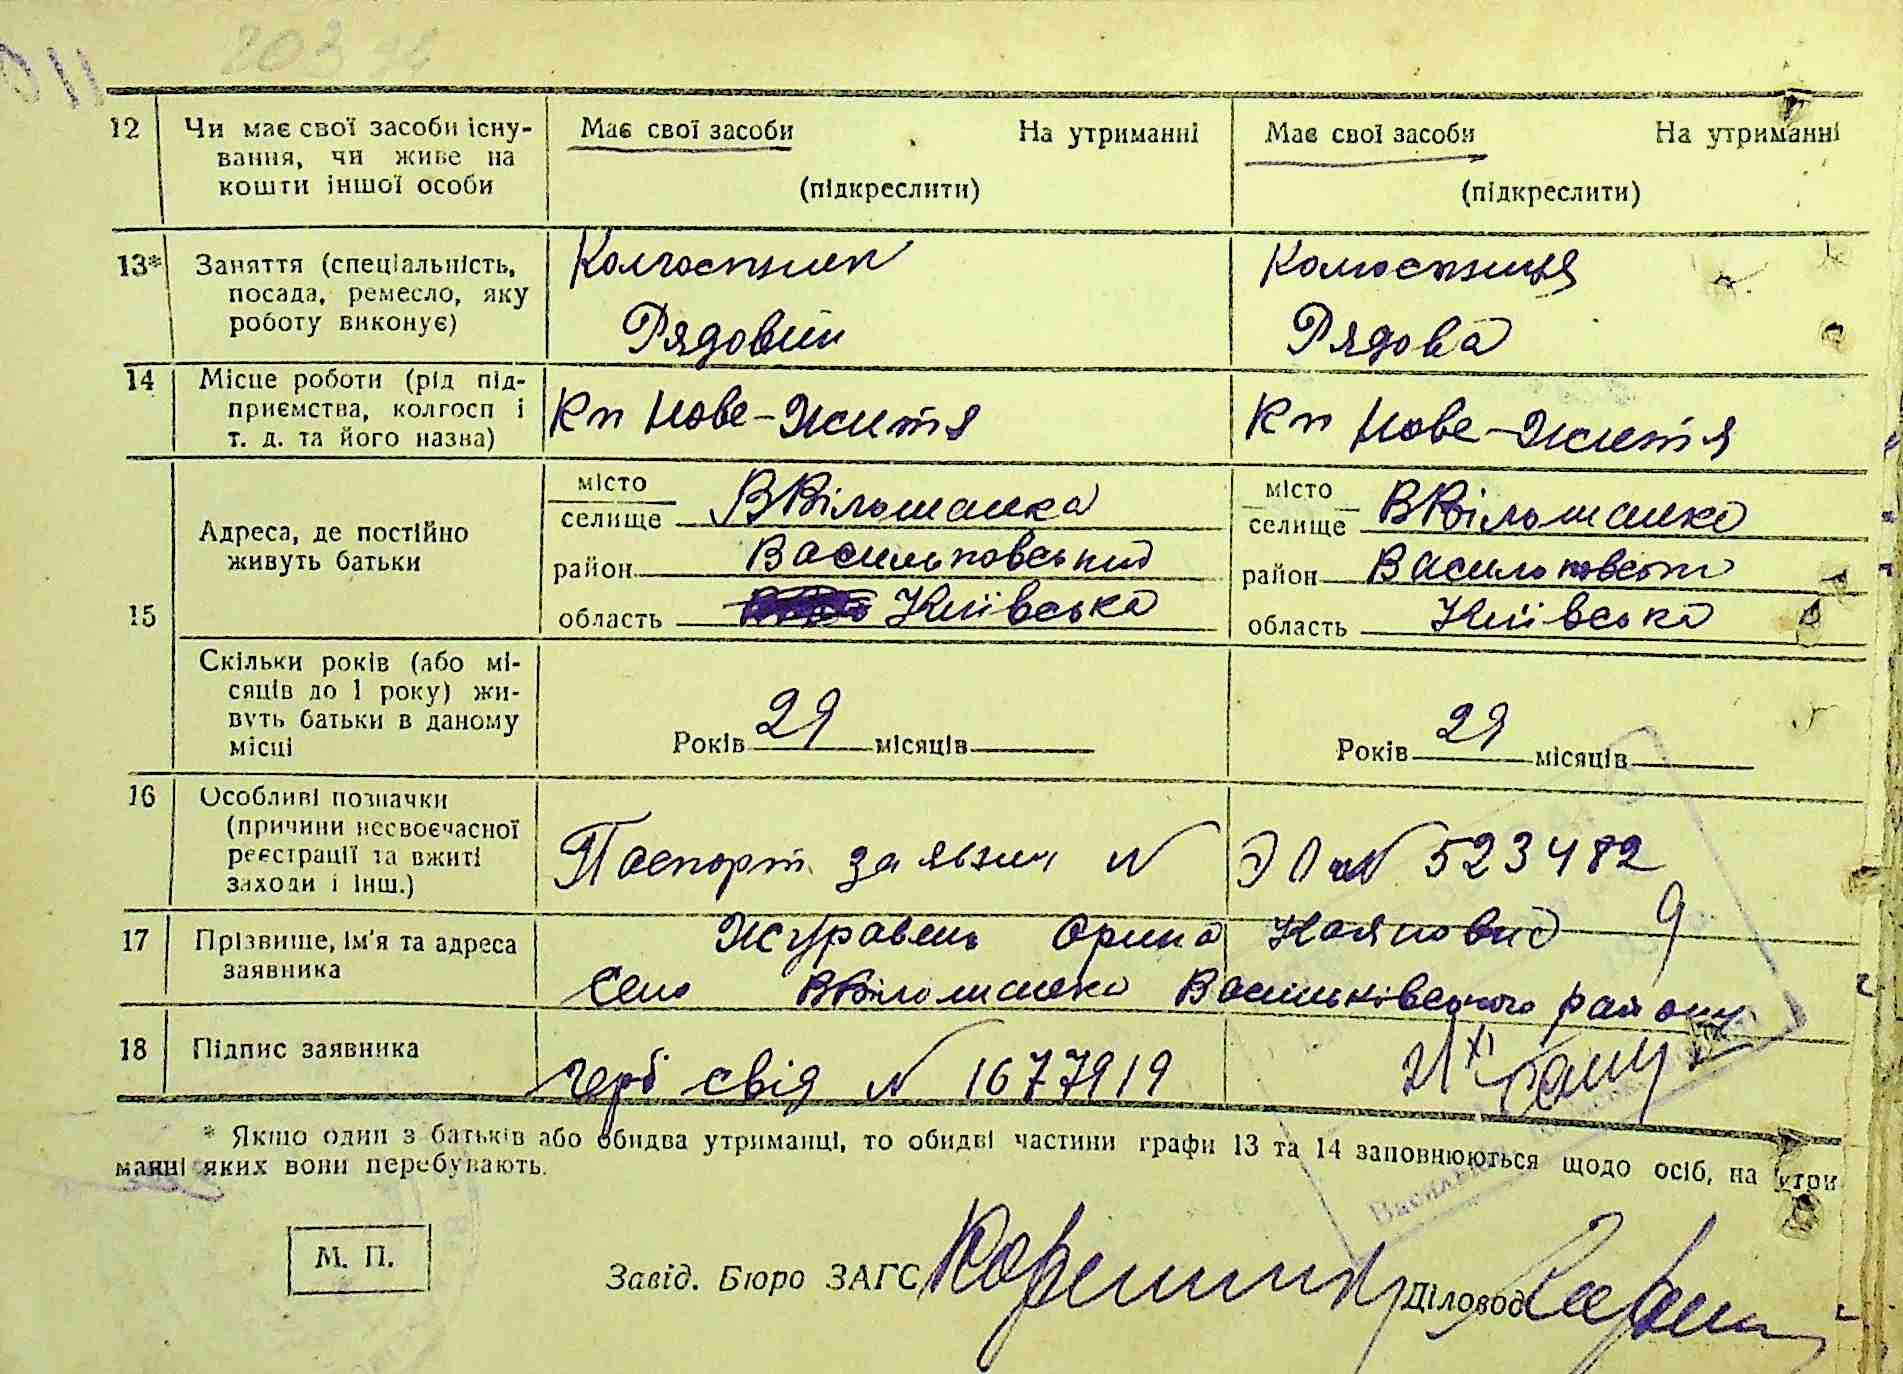 203
12 Чи має свої засоби існу-
вання, чи живе на
кошти іншої особи
Має свої засоби На утриманні
(підкреслити)
Має свої засоби На утриманні
(підкреслити)
13* Заняття (спеціальність,
посада, ремесло, яку
роботу виконує)
Колгоспник
Рядовий
Колгоспниця
Рядова
14 Місце роботи (рід під-
приємства, колгосп і
т. д. та його назва)
Кп Нове-Життя
Кп Нове-Життя
15 Адреса, де постійно
живуть батьки
місто
селище ВВільшанка
район Васильковський
область Київська
місто
селище ВВільшанка
район Васильковськи
область Київська
Скільки років (або мі-
сяців до 1 року) жи-
вуть батьки в даному
місці
Років 29 місяців
Років 29 місяців
16 Особливі позначки
(причини несвоєчасної
реєстрації та вжиті
заходи і інш.)
Паспорт заявниц N N 523482
17 Прізвище, ім'я та адреса
заявника
Журавель Орина
Село ВВільшанка Васильківського району
18 Підпис заявника
герб свід N 1677919
* Якщо один з батьків або обидва утриманці, то обидві частини графи 13 та 14 заповнюються щодо осіб, на утри-
манні яких вони перебувають.
М. П.
Завід. Бюро ЗАГС
Діловод